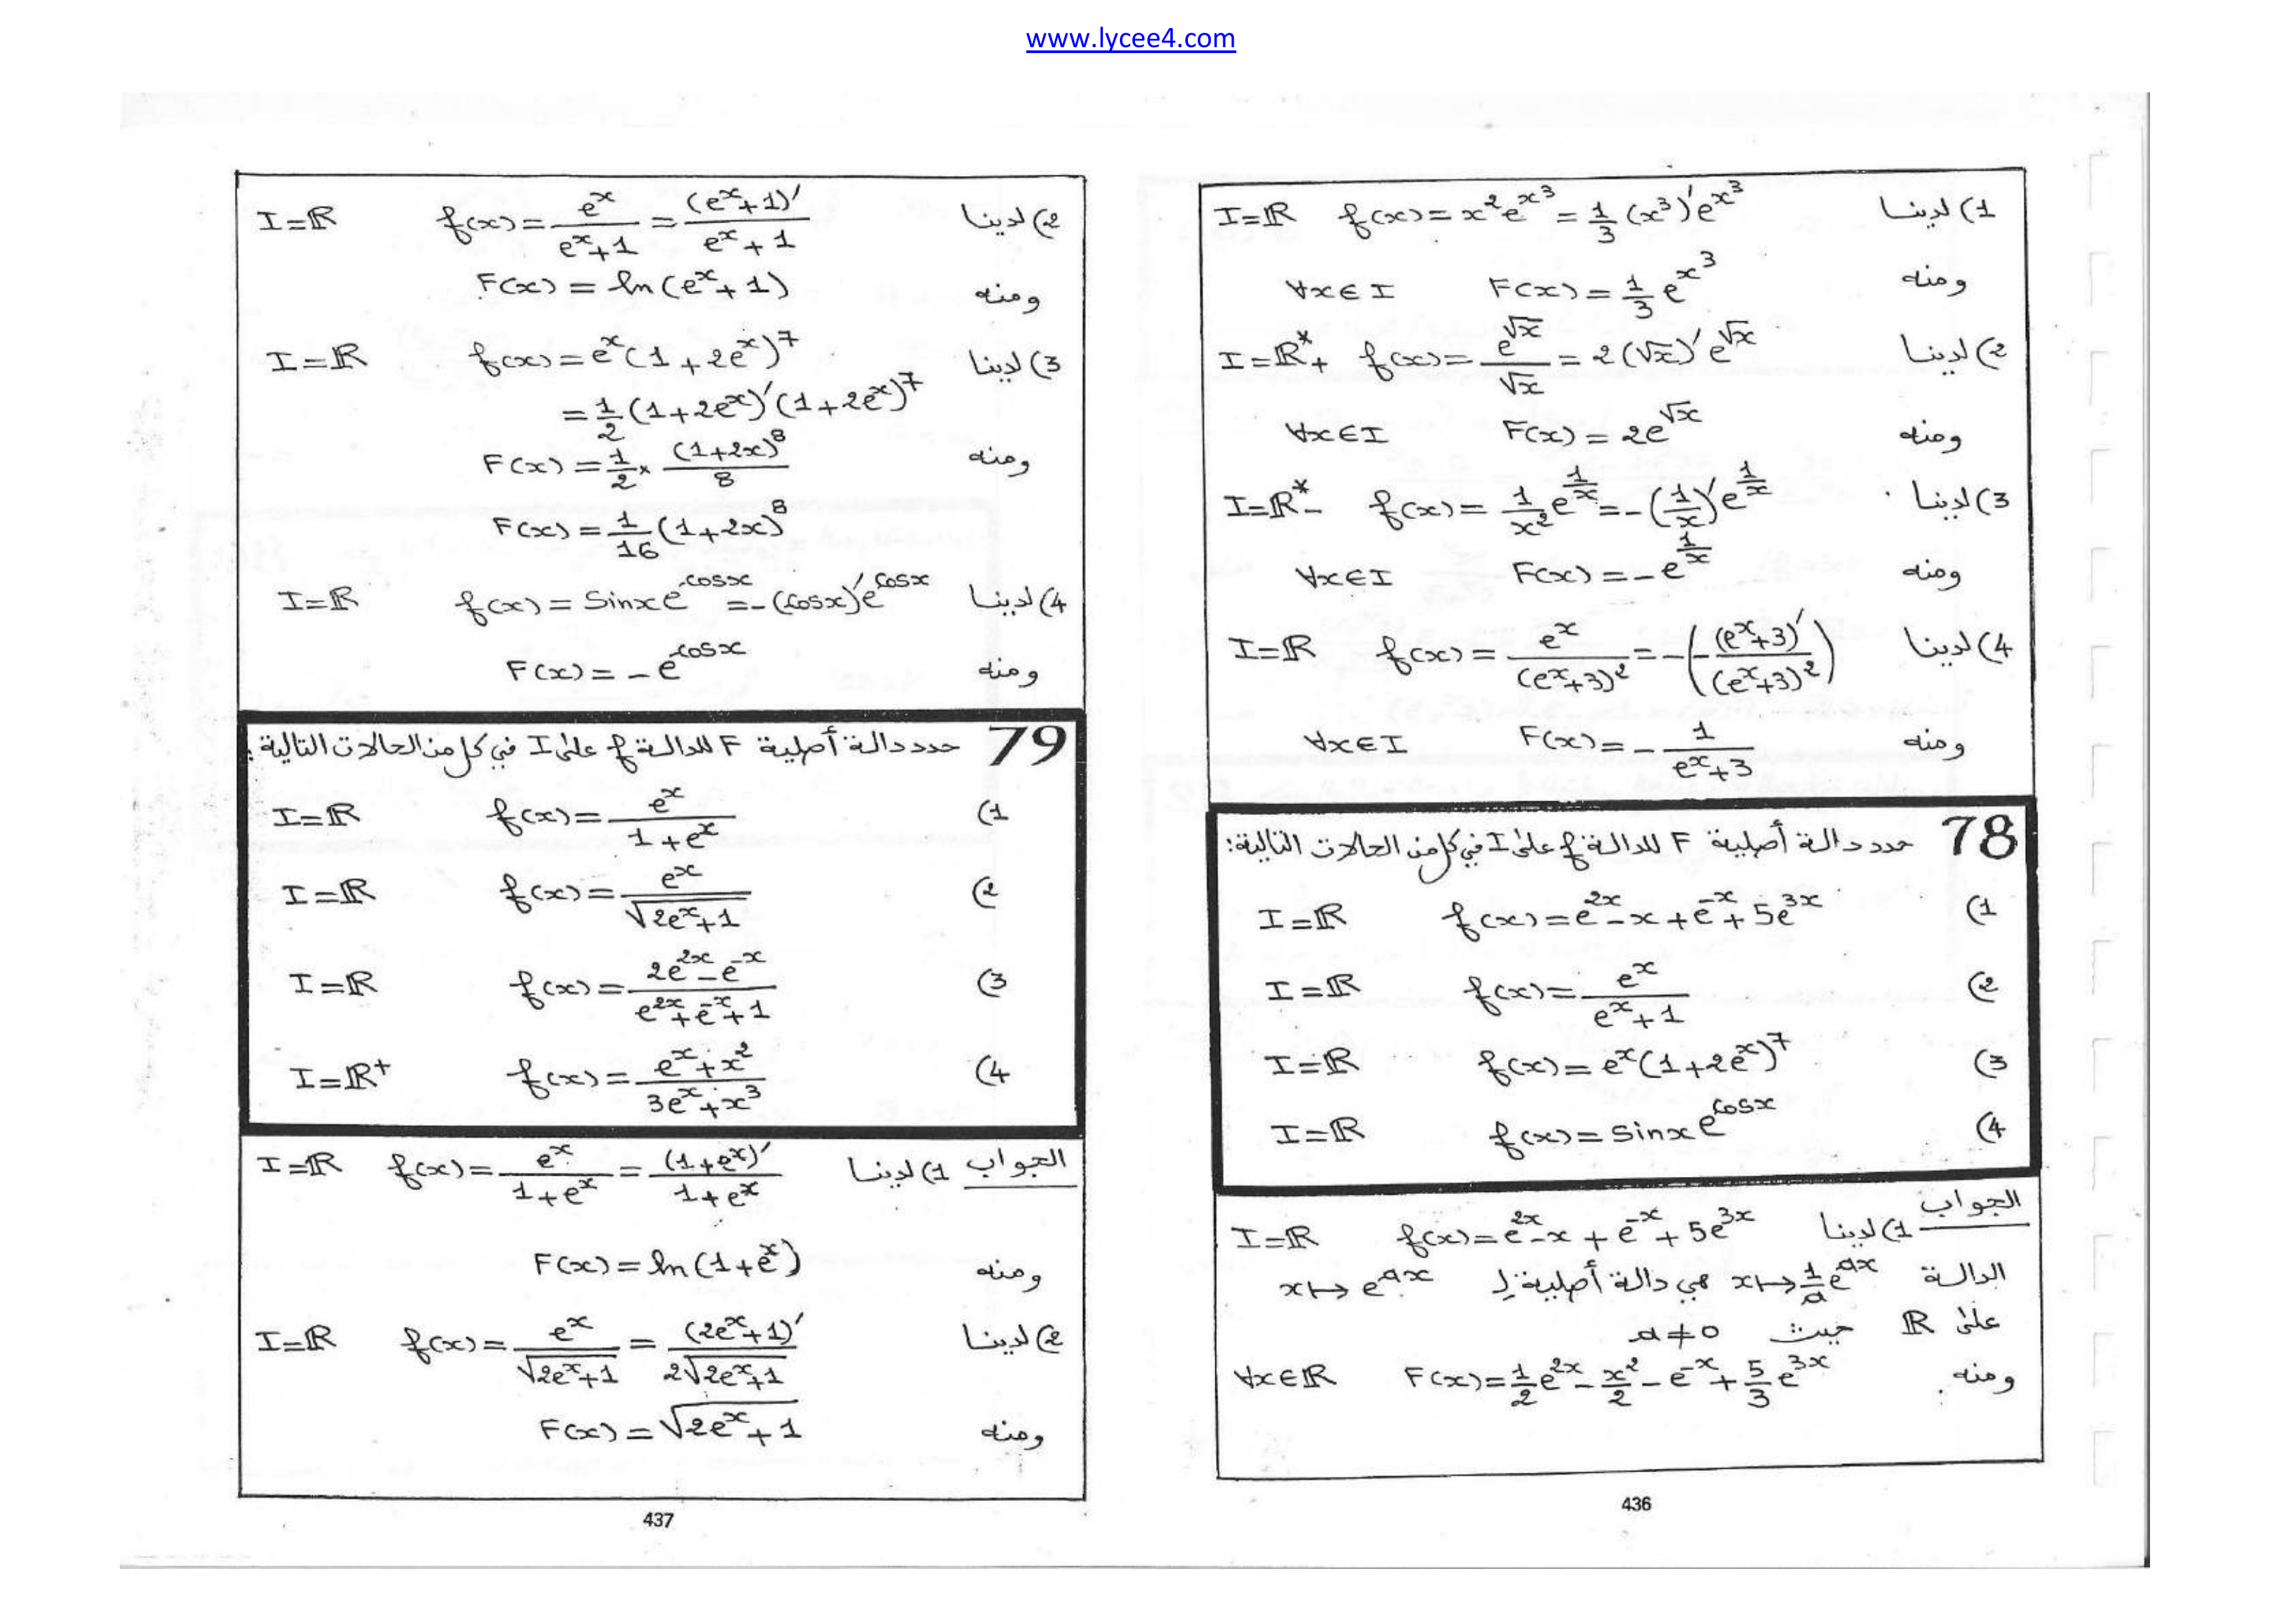 www.lycee4.com
1) لدينا f(x) = x²e^(x³) = 1/3 (x³)' e^(x³) I=ℝ
ومنه F(x) = 1/3 e^(x³) ∀x∈I
2) لدينا f(x) = e^(√x)/√x = 2(√x)' e^(√x) I=ℝ*+
ومنه F(x) = 2e^(√x) ∀x∈I
3) لدينا f(x) = 1/x² e^(1/x) = -(1/x)' e^(1/x) I=ℝ*-
ومنه F(x) = -e^(1/x) ∀x∈I
4) لدينا f(x) = e^x/(e^x+3)² = -(-(e^x+3)'/(e^x+3)²) I=ℝ
ومنه F(x) = - 1/(e^x+3) ∀x∈I
78 حدد دالة أصلية F للدالة f على I في كل من الحالات التالية:
1) f(x) = e^(2x) - x + e^(-x) + 5e^(3x) I=ℝ
2) f(x) = e^x/(e^x+1) I=ℝ
3) f(x) = e^x(1+2e^x)^7 I=ℝ
4) f(x) = sinx e^(cosx) I=ℝ
الجواب
1) لدينا f(x) = e^(2x) - x + e^(-x) + 5e^(3x) I=ℝ
الدالة x↦1/a e^(ax) هي دالة أصلية لـ x↦e^(ax)
على ℝ حيث a≠0
ومنه F(x) = 1/2 e^(2x) - x²/2 - e^(-x) + 5/3 e^(3x) ∀x∈ℝ
436
2) لدينا f(x) = e^x/(e^x+1) = (e^x+1)'/(e^x+1) I=ℝ
ومنه F(x) = ln(e^x+1)
3) لدينا f(x) = e^x(1+2e^x)^7 I=ℝ
= 1/2 (1+2e^x)'(1+2e^x)^7
ومنه F(x) = 1/2 × (1+2x)^8/8
F(x) = 1/16 (1+2x)^8
4) لدينا f(x) = sinx e^(cosx) = -(cosx)' e^(cosx) I=ℝ
ومنه F(x) = -e^(cosx)
79 حدد دالة أصلية F للدالة f على I في كل من الحالات التالية:
1) f(x) = e^x/(1+e^x) I=ℝ
2) f(x) = e^x/√(2e^x+1) I=ℝ
3) f(x) = (2e^(2x) - e^(-x))/(e^(2x)+e^(-x)+1) I=ℝ
4) f(x) = (e^x+x²)/(3e^x+x³) I=ℝ+
الجواب 1) لدينا f(x) = e^x/(1+e^x) = (1+e^x)'/(1+e^x) I=ℝ
ومنه F(x) = ln(1+e^x)
2) لدينا f(x) = e^x/√(2e^x+1) = (2e^x+1)'/(2√(2e^x+1)) I=ℝ
ومنه F(x) = √(2e^x+1)
437